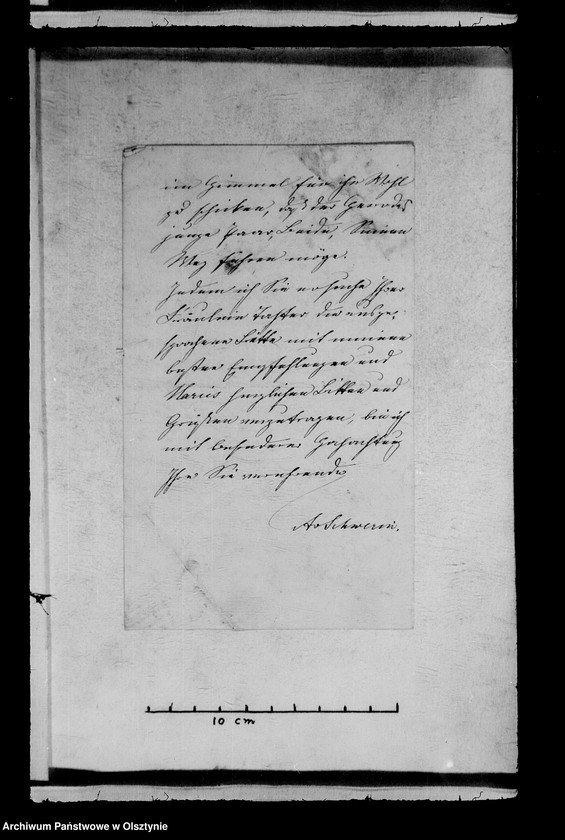 im Himmel für ihr Wohl
zu schicken, daß der Herr das
junge Paar, Beide, Seinen
Weg führen möge.
Indem ich Sie ersuche Ihrer
Fräulein Tochter die ausge-
sprochene Bitte mit meinen
besten Empfehlungen und
Maries herzlichen Bitten und
Grüßen vorzutragen, bin ich
mit besonderer Hochachtung
Ihr Sie verehrender
AvSchwerin.
10 cm
Archiwum Państwowe w Olsztynie